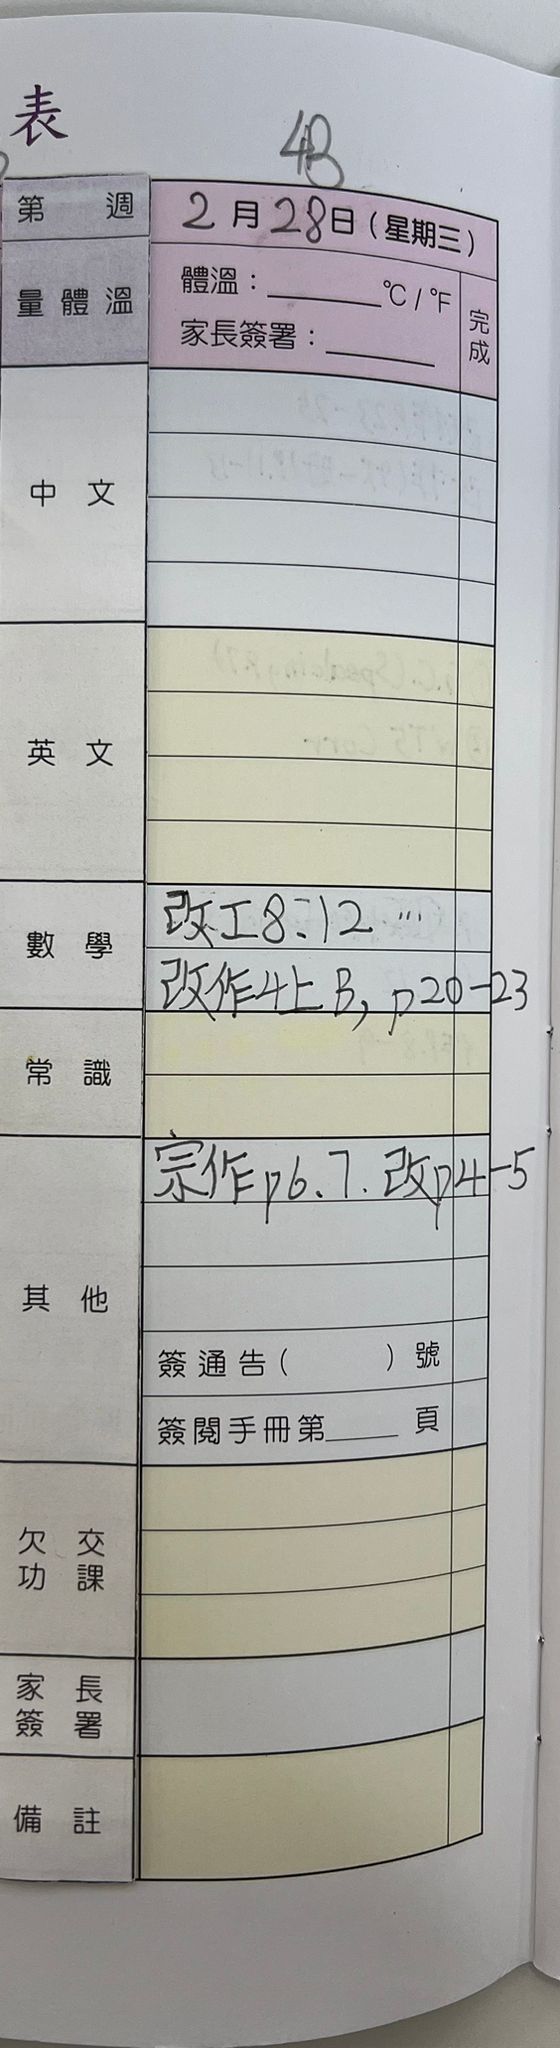 表
4B
第 週 2月28日(星期三)
量體溫 體溫：______°C / °F 完成
家長簽署：______
中文
英文
數學 改工8:12 …
改作4上B, p20-23
常識
其他 宗作p6、7. 改p4-5
簽通告( )號
簽閱手冊第____頁
欠交功課
家長簽署
備註